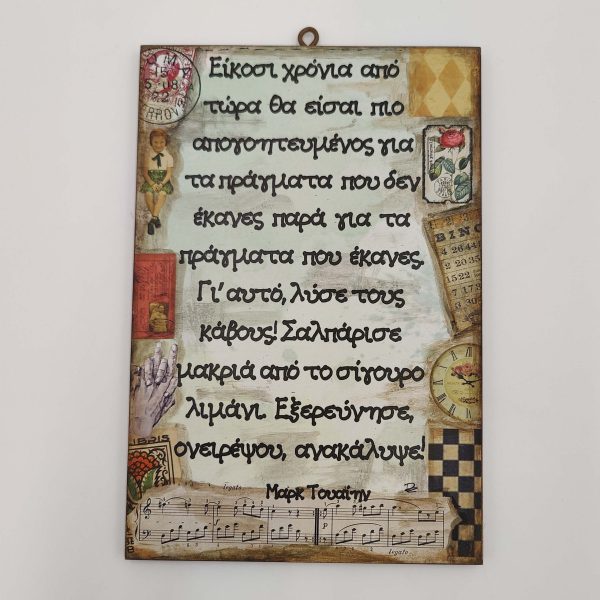 Είκοσι χρόνια από
τώρα θα είσαι πιο
απογοητευμένος για
τα πράγματα που δεν
έκανες παρά για τα
πράγματα που έκανες.
Γι' αυτό, λύσε τους
κάβους! Σαλπάρισε
μακριά από το σίγουρο
λιμάνι. Εξερεύνησε,
ονειρέψου, ανακάλυψε!
Μαρκ Τουαίην
BINGO
legato
legato